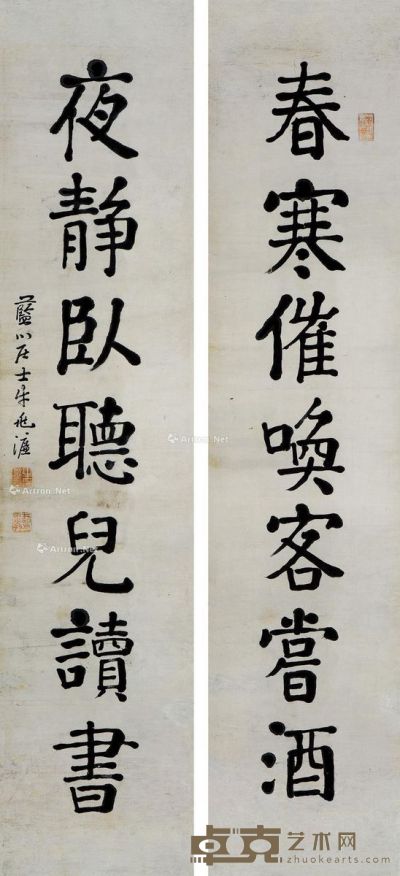 春寒催喚客嘗酒
夜靜臥聽兒讀書
藍
居士朱
Artron.Net
Artron.Net
Artron.Net
Artron.Net
卓克艺术网
zhuokearts.com